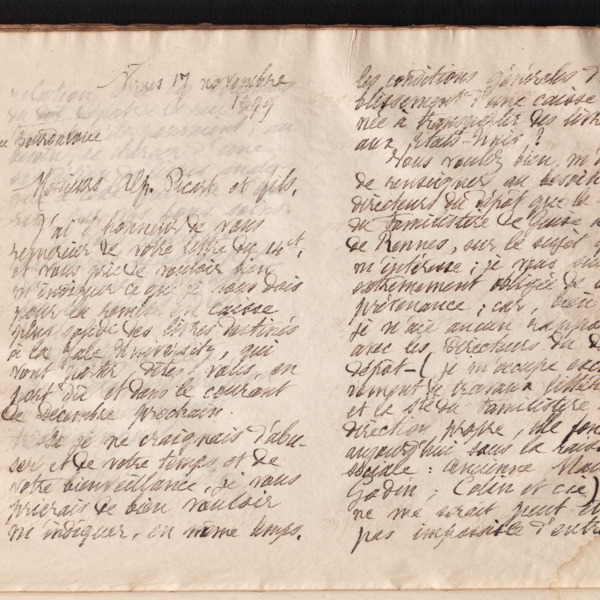 Nîmes 17 novembre
1899
rue Bourdaloue
Messieurs Alp. Picard et fils,
J'ai l'honneur de vous
remercier de votre lettre du 14 ct,
et vous prie de vouloir bien
m'indiquer ce que je vous dois
pour la remise en caisse
plus solide des livres destinés
à la Yale University, qui
vont partir, dites-vous, en
port dû et dans le courant
de décembre prochain.
Si je ne craignais d'abu-
ser et de votre temps et de
votre bienveillance, je vous
prierais de bien vouloir
m'indiquer, en même temps,
les conditions générales d
blissement d'une caisse
née à transporter des livres
aux Etats-Unis ?
Vous voulez bien m'
de renseigner au besoin
directeurs du dépôt que le
du familistère de Guise a
de Rennes, sur le sujet q
m'intéresse ; je vous suis
extrêmement obligée de c
prévenance ; car, bien
je n'aie aucun rappor
avec les Directeurs du d
dépôt - (je m'occupe excl
vement de travaux littér
et la Sté du familistère
direction propre, elle fon
aujourd'hui sous la raiso
sociale : ancienne Mai
Godin ; Colin et cie)
ne me serait peut-êt
pas impossible d'entre